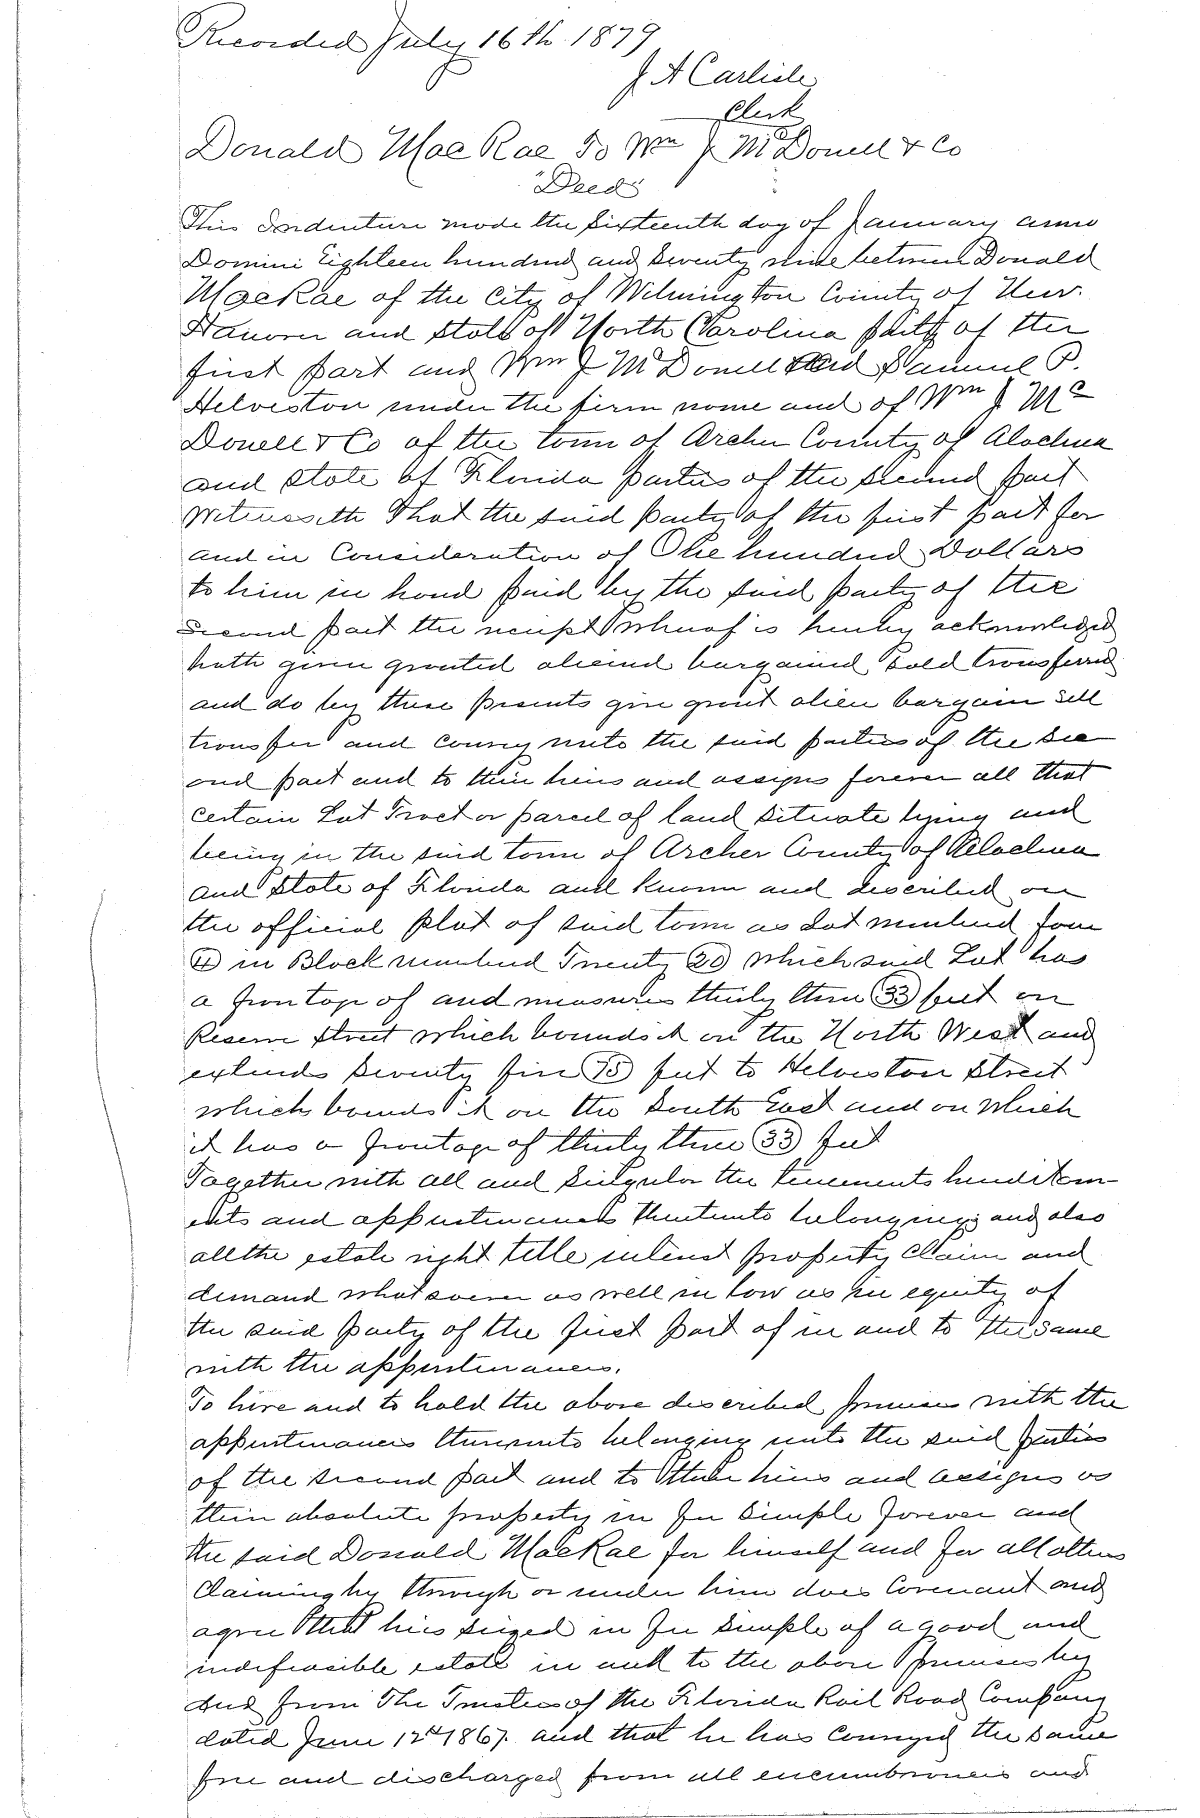 Recorded July 16th 1879
J A Carlisle
Clerk
Donald MacRae To Wm J McDonell & Co
"Deed"
This Indenture made the Sixteenth day of January anno
Domini Eighteen hundred and Seventy nine between Donald
MacRae of the City of Wilmington County of New
Hanover and State of North Carolina party of the
first part and Wm J McDonell and Samuel P.
Helveston under the firm name and of Wm J Mc
Donell & Co of the town of Archer County of Alachua
and State of Florida parties of the second part
Witnesseth That the said party of the first part for
and in Consideration of One hundred Dollars
to him in hand paid by the said party of the
Second part the receipt whereof is hereby acknowledged
hath given granted aliened bargained sold transferred
and do by these presents give grant alien bargain sell
transfer and convey unto the said parties of the Sec
ond part and to their heirs and assigns forever all that
certain Lot Tract or parcel of land situate lying and
being in the said town of Archer County of Alachua
and State of Florida and known and described on
the official plat of said town as Lot numbered four
(4) in Block numbered Twenty (20) which said Lot has
a frontage of and measures thirty three (33) feet on
Reserve Street which bounds it on the North West and
extends Seventy five (75) feet to Helveston Street
which bounds it on the South East and on which
it has a frontage of thirty three (33) feet
Together with all and Singular the tenements heriditam-
ents and appurtenances thereunto belonging; and also
all the estate right title interest property claim and
demand whatsoever as well in law as in equity of
the said party of the first part of in and to the same
with the appurtenances.
To have and to hold the above described premises with the
appurtenances thereunto belonging unto the said parties
of the second part and to their heirs and assigns as
their absolute property in fee Simple forever and
the said Donald MacRae for himself and for all others
Claiming by through or under him does Covenant and
agree that he is seized in fee simple of a good and
indefeasible estate in and to the above premises by
deed from The Trustees of the Florida Rail Road Company
dated June 12th 1867. and that he has conveyed the same
free and discharged from all encumbrances and